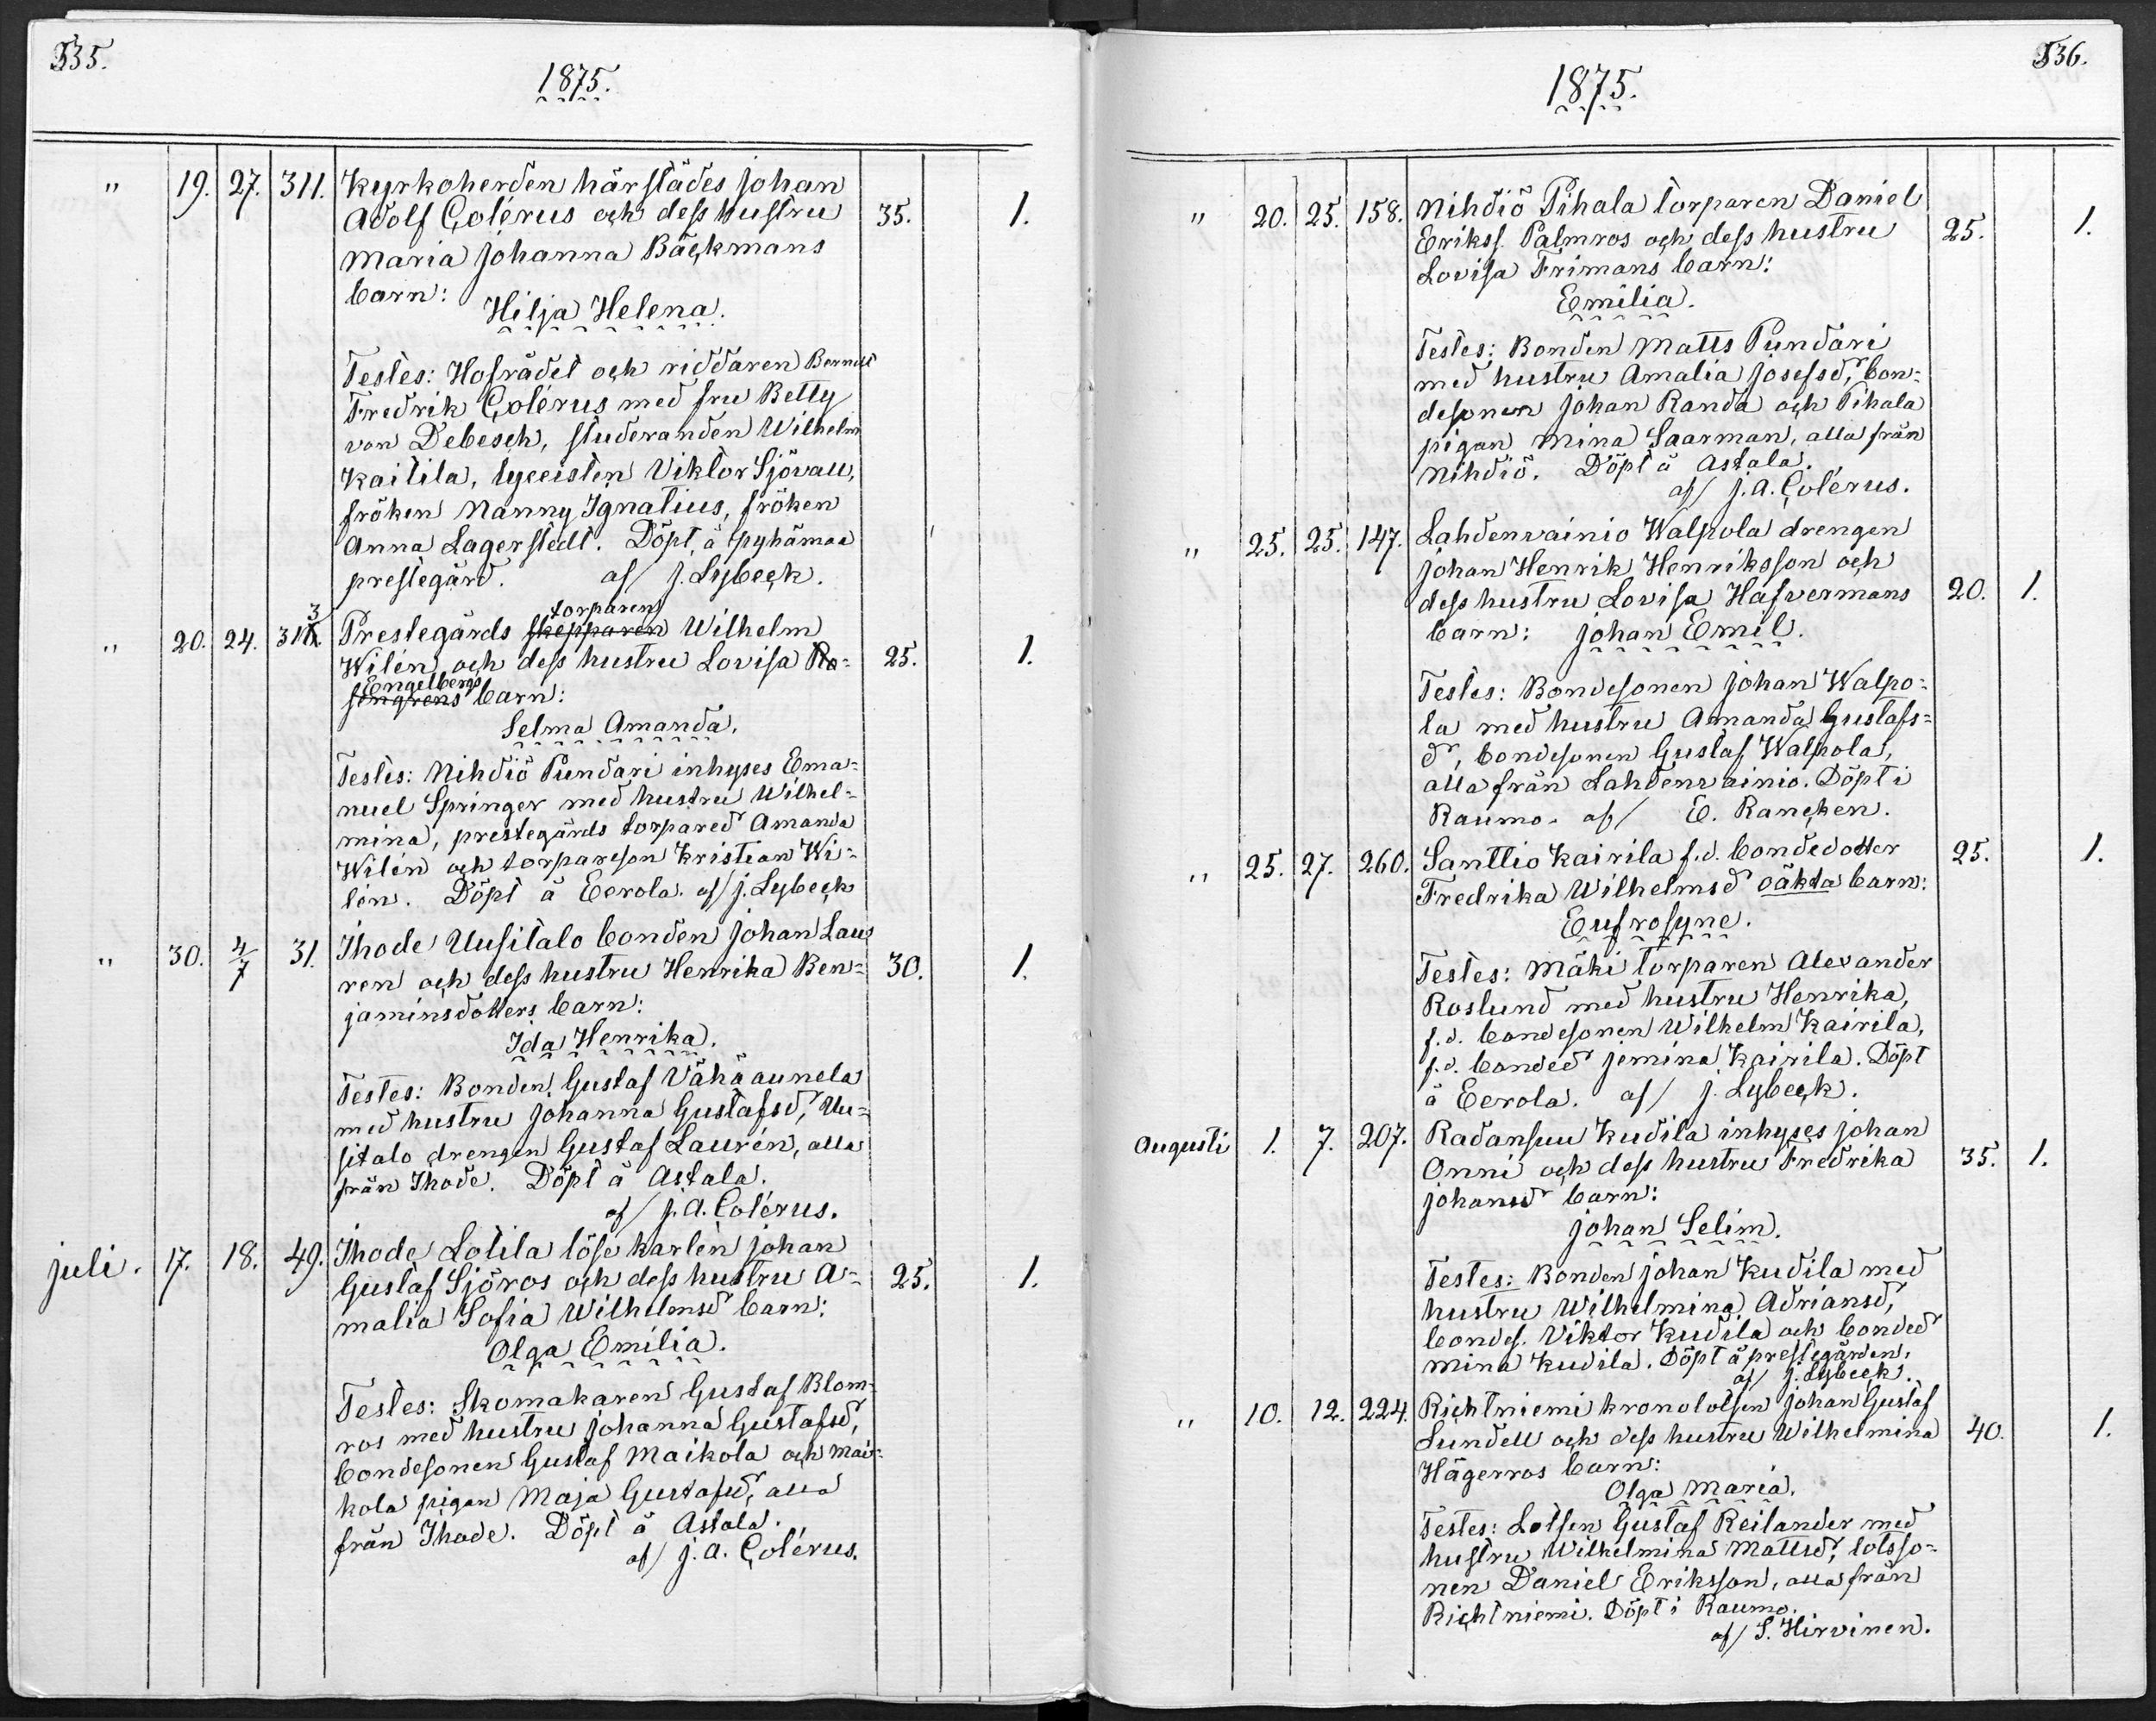 535.
1875.
" 19. 27. 311. Kyrkoherden härstädes Johan
Adolf Colérus och dess hustru 35. 1.
Maria Johanna Bäckmans
barn:
Hilja Helena.
Testes: Hofrådet och riddaren Berndt
Fredrik Colérus med fru Betty
von Debesch, studeranden Wilhelm
Kaitila, lyceisten Viktor Sjövall,
fröken Nanny Ignatius, fröken
Anna Lagerstedt. Döpt å Pyhämaa
prestegård. af J. Lybeck.
torparen
" 20. 24. 313 Prestegårds skepparen Wilhelm
Wilén och dess hustru Lovisa Ro- 25. 1.
Engelbergs
sengrens barn:
Selma Amanda.
Testes: Nihdiö Pundari inhyses Ema-
nuel Springer med hustru Wilhel-
mina, prestegårds torpared Amanda
Wilén och torpareson Kristian Wi-
lén. Döpt å Eerola. af J. Lybeck
" 30. 4/7 31. Ihode Uusitalo bonden Johan Lau-
rén och dess hustru Henrika Ben- 30. 1.
jaminsdotters barn:
Ida Henrika.
Testes: Bonden Gustaf Vähä aunela
med hustru Johanna Gustafsd, Uu-
sitalo drengen Gustaf Laurén, alla
från Ihode. Döpt å Astala.
af J. A. Colérus.
Juli. 17. 18. 49. Ihode Lotila löse karlen Johan
Gustaf Sjöros och dess hustru A- 25. 1.
malia Sofia Wilhelmsd barn:
Olga Emilia.
Testes: Skomakaren Gustaf Blom-
ros med hustru Johanna Gustafsd,
bondesonen Gustaf Maikola och Mai-
kola pigan Maja Gustafsd, alla
från Ihode. Döpt å Astala.
af J. A. Colérus.
536.
1875.
" 20. 25. 158. Nihdiö Pihala torparen Daniel
Erikss. Palmros och dess hustru 25. 1.
Lovisa Frimans barn:
Emilia.
Testes: Bonden Matts Pundari
med hustru Amalia Josefsd, bon-
desonen Johan Randa och Pihala
pigan Mina Saarman, alla från
Nihdiö. Döpt å Astala.
af J. A. Colérus.
" 25. 25. 147. Lahdenvainio Walpola drengen
Johan Henrik Henriksson och
dess hustru Lovisa Hafvermans 20. 1.
barn: Johan Emil.
Testes: Bondesonen Johan Walpo-
la med hustru Amanda Gustafs-
d, bondesonen Gustaf Walpola,
alla från Lahdenvainio. Döpt i
Raumo. af E. Rancken.
" 25. 27. 260. Santtio Kairila f.d. bondedotter 25. 1.
Fredrika Wilhelmsd oäkta barn:
Eufrosyne.
Testes: Mäki torparen Alexander
Roslund med hustru Henrika,
f.d. bondesonen Wilhelm Kairila,
f.d. bonded Jemina Kairila. Döpt
å Eerola. af J. Lybeck.
Augusti 1. 7. 207. Radansuu Kudila inhyses Johan
Onni och dess hustru Fredrika 35. 1.
Johansd barn:
Johan Selim.
Testes: Bonden Johan Kudila med
hustru Wilhelmina Adriansd,
bondes. Viktor Kudila och bonded
Mina Kudila. Döpt å prestegården.
af J. Lybeck.
" 10. 12. 224. Richtniemi kronolotsen Johan Gustaf
Lundell och dess hustru Wilhelmina 40. 1.
Hägerros barn:
Olga Maria.
Testes: Lotsen Gustaf Reilander med
hustru Wilhelmina Mattsd, lotsso-
nen Daniel Eriksson, alla från
Richtniemi. Döpt i Raumo.
af S. Hirvinen.